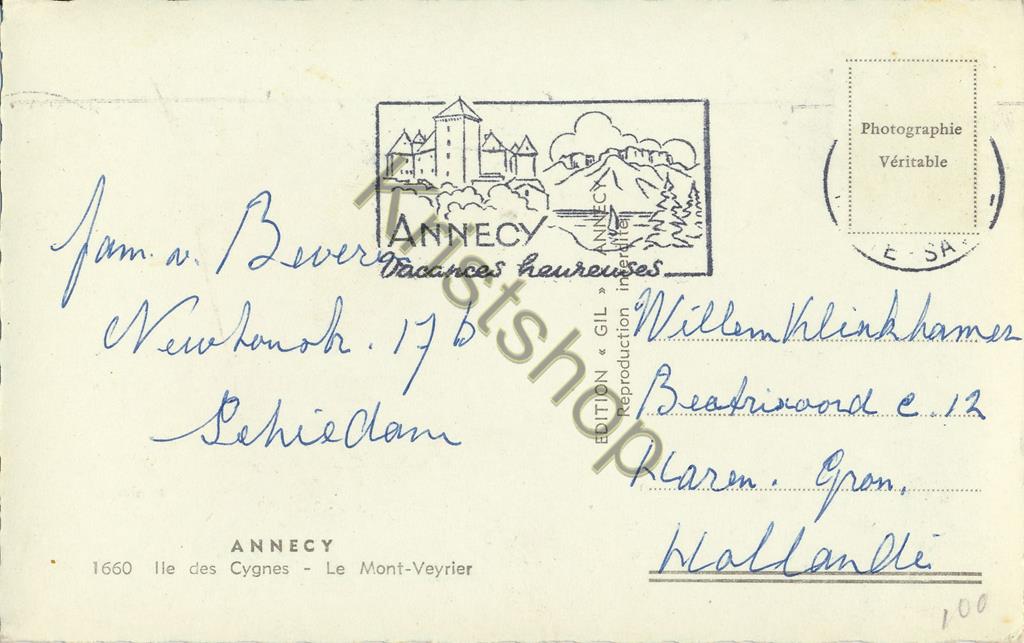 Photographie
Véritable
E-SA
ANNECY
Vacances heureuses
fam. v. Bevere
Newtonstr. 17b
Schiedam
EDITION « GIL » ANNECY
Reproduction interdite
Willem Klinkhamer
Beatrixoord c. 12
Haren. Gron.
Hollande
ANNECY
1660 Ile des Cygnes - Le Mont-Veyrier
100
Kristshop